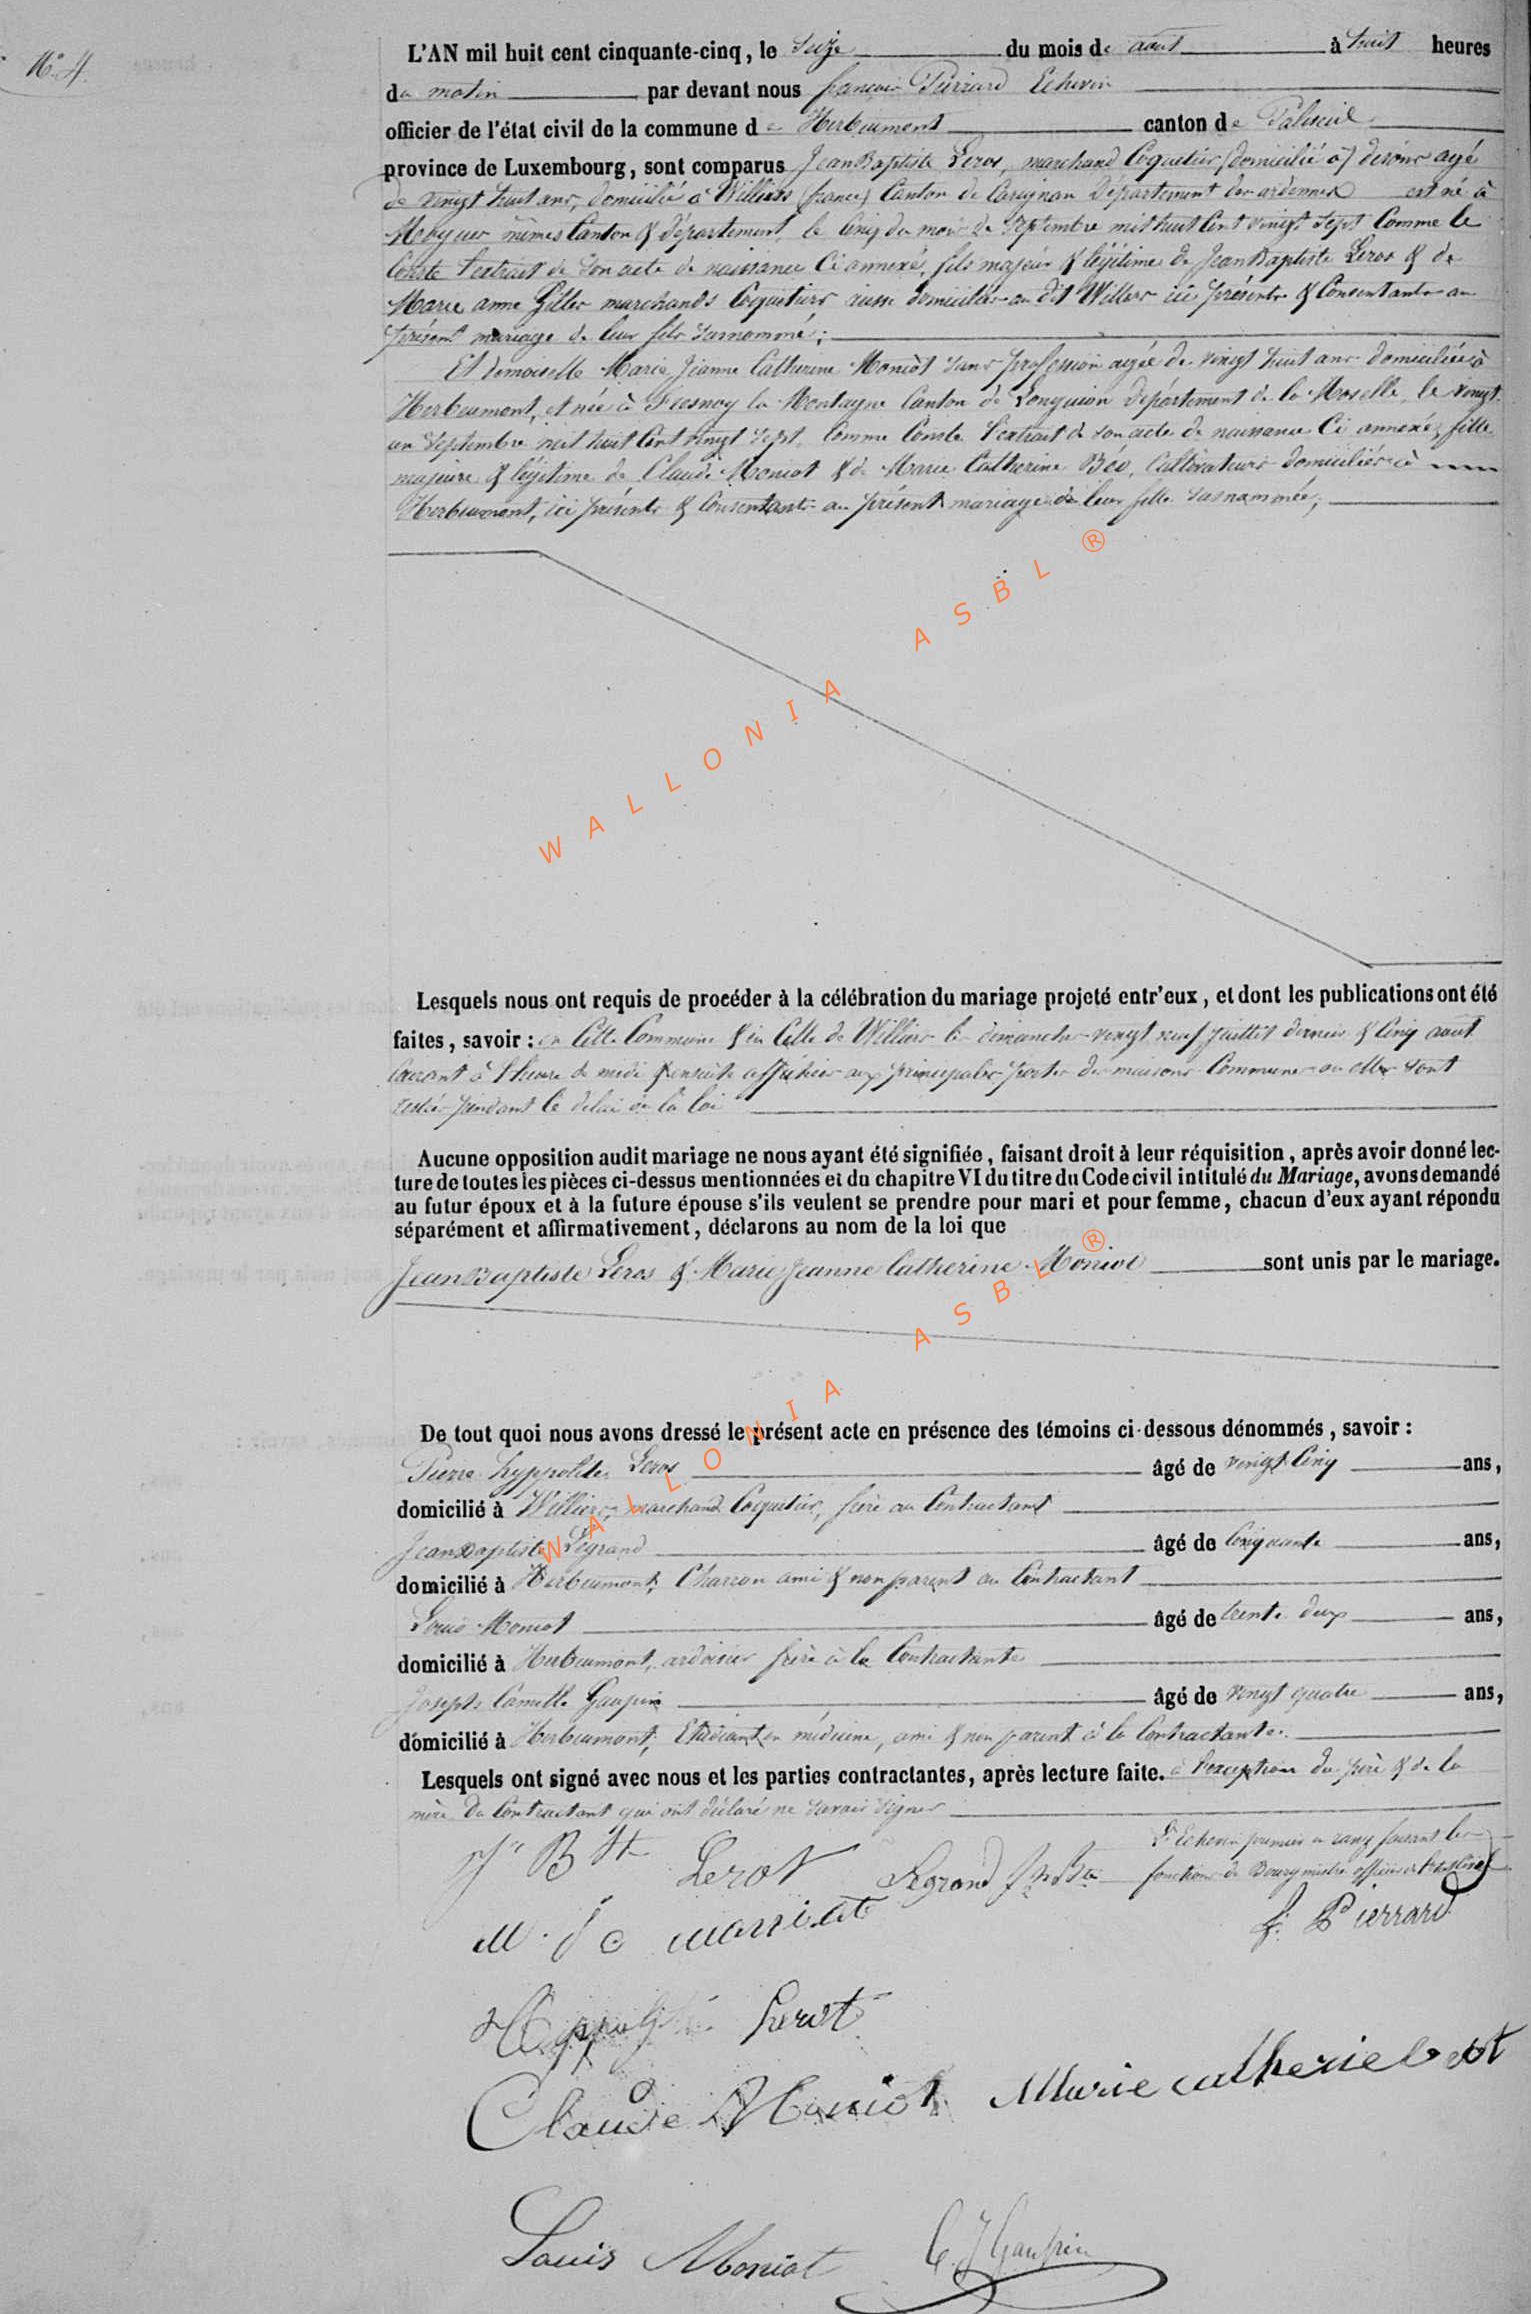 N° 4.
L'AN mil huit cent cinquante-cinq, le seize du mois de aout à huit heures
du matin par devant nous françois Pierrard Echevin
officier de l'état civil de la commune de Herbeumont canton de Paliseul
province de Luxembourg, sont comparus Jean Baptiste Leros, marchand Coquetier (domicilié à) agé
de vingt huit ans, domicilié à Williers (france) Canton de Carignan Département des ardennes est né à
même Canton & département, le Cinq du mois de Septembre mil huit Cent vingt sept Comme le
Conste l'extrait de son acte de naissance Ci annexé, fils majeur & légitime de Jean Baptiste Leros & de
Marie anne Gilles marchands Coquetiers aussi domiciliés au dit Williers ici présents & Consentants au
présent mariage de leur fils surnommé;
Et demoiselle Marie Jeanne Catherine Moniot sans profession agée de vingt huit ans domiciliée à
Herbeumont, et née à Fresnoy la Montagne Canton de Longuion Département de la Moselle, le vingt
un Septembre mil huit Cent vingt sept, Comme Conste l'extrait de son acte de naissance Ci annexé, fille
majeure & légitime de Claude Moniot & de Marie Catherine Cultivateurs domiciliés à
Herbeumont, ici présents & Consentants au présent mariage de leur fille susnommée;
WALLONIA ASBL ®
Lesquels nous ont requis de procéder à la célébration du mariage projeté entr'eux, et dont les publications ont été
faites, savoir: en Cette Commune & en Celle de Williers les dimanches vingt neuf juillet dernier & Cinq aout
Courant à l'heure de midi & ensuite affichées aux principales portes des maisons Communes ou elles sont
restées pendant le délai de la loi
Aucune opposition audit mariage ne nous ayant été signifiée, faisant droit à leur réquisition, après avoir donné lec-
ture de toutes les pièces ci-dessus mentionnées et du chapitre VI du titre du Code civil intitulé du Mariage, avons demandé
au futur époux et à la future épouse s'ils veulent se prendre pour mari et pour femme, chacun d'eux ayant répondu
séparément et affirmativement, déclarons au nom de la loi que
Jean Baptiste Leros & Marie Jeanne Catherine Moniot sont unis par le mariage.
WALLONIA ASBL ®
De tout quoi nous avons dressé le présent acte en présence des témoins ci-dessous dénommés, savoir:
Pierre hyppolite Leros âgé de vingt Cinq ans,
domicilié à Williers, marchand Coquetier, frère au Contractant
Jean Baptiste Legrand âgé de Cinquante ans,
domicilié à Herbeumont, Charron ami & non parent au Contractant
Louis Moniot âgé de trente deux ans,
domicilié à Herbeumont, ardoisier frère à la Contractante
Joseph Camille Gaupin âgé de vingt quatre ans,
domicilié à Herbeumont, Etudiant en médecine, ami & non parent à la Contractante.
Lesquels ont signé avec nous et les parties contractantes, après lecture faite. à l'exception du père & de la
mère du Contractant qui ont déclaré ne savoir signer
L'Echevin premier en rang faisant les
fonctions de Bourgmestre officier de l'état civil
J Bte Lerot Legrand Jn Bte
F. Pierrard
M. J C moniot
Hyppolite Lerot
Claude Moniot Marie catherie
Louis Moniot C. J Gaupin